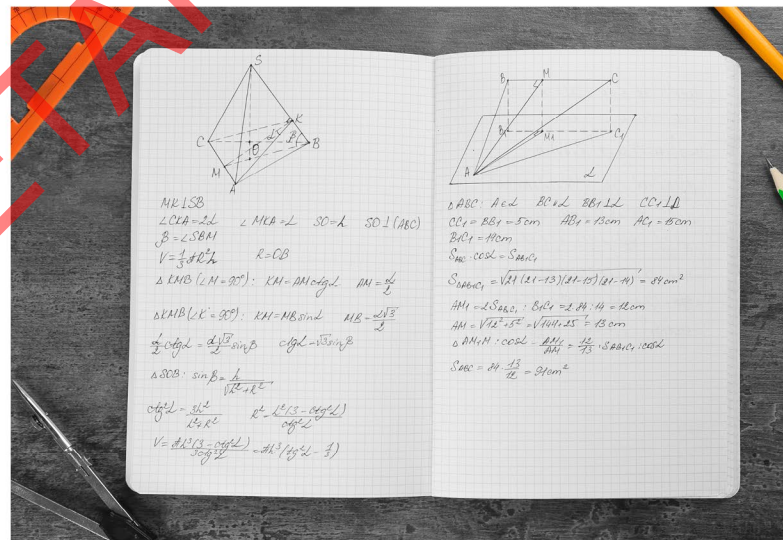 S
K
C
B
O
M
A
2
β
MK⊥SB
∠CKA=2α ∠MKA=α SO=h SO⊥(ABC)
β=∠SBM
V=1/3πR²h R=OB
ΔKMB(∠M=90°): KM=AMctgα AM=a/2
ΔKMB(∠K=90°): KM=MBsinα MB=a√3/2
a/2 ctgα=a√3/2 sinβ ctgα=√3sinβ
ΔSOB: sinβ=h/√h²+R²
ctg²α=3h²/h²+R² R²=h²(3-ctg²α)/ctg²α
V=πh³(3-ctg²α)/3ctg²α=πh³(tg²α-1/3)
B M C
B1 M1 C1
A α
ΔABC: A∈α BC∥α BB1⊥α CC1⊥α
CC1=BB1=5cm AB1=13cm AC1=15cm
B1C1=14cm
SABC·cosα=SAB1C1
SΔAB1C1=√21(21-13)(21-15)(21-14)=84cm²
AM1=2SABC1:B1C1=2·84:14=12cm
AM=√12²+5²=√144+25=13cm
ΔAM1M:cosα=AM1/AM=12/13·SAB1C1:cosα
SABC=84·13/12=91cm²